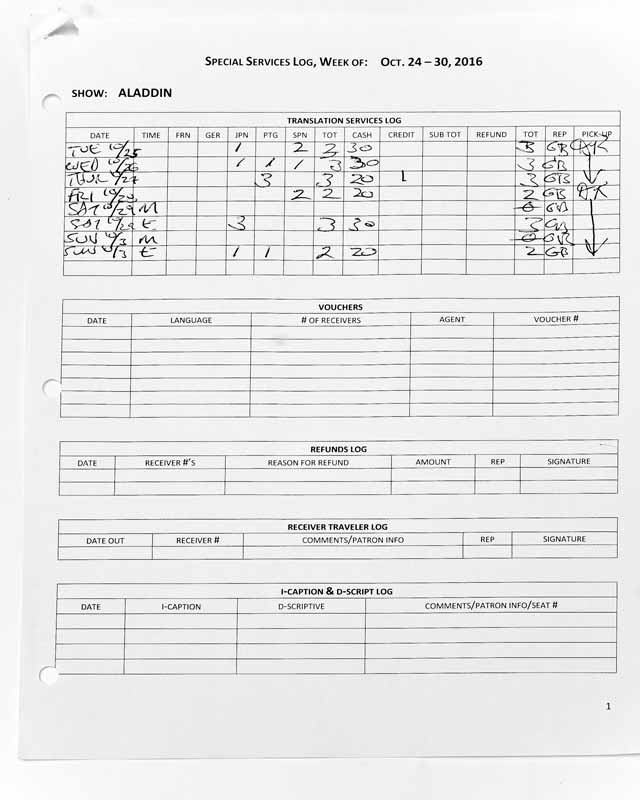 SPECIAL SERVICES LOG, WEEK OF: OCT. 24 – 30, 2016
SHOW: ALADDIN
TRANSLATION SERVICES LOG
DATE TIME FRN GER JPN PTG SPN TOT CASH CREDIT SUB TOT REFUND TOT REP PICK-UP
TUE 10/25 1 2 3 30 3 GB
WED 10/26 1 1 1 3 30 3 GB
THUR 10/27 3 3 20 1 3 GB
FRI 10/28 2 2 20 2 GB
SAT 10/29 M 0 GB
SAT 10/29 E 3 3 30 3 GB
SUN 10/3 M 0 GB
SUN 10/3 E 1 1 2 20 2 GB
VOUCHERS
DATE LANGUAGE # OF RECEIVERS AGENT VOUCHER #
REFUNDS LOG
DATE RECEIVER #'S REASON FOR REFUND AMOUNT REP SIGNATURE
RECEIVER TRAVELER LOG
DATE OUT RECEIVER # COMMENTS/PATRON INFO REP SIGNATURE
I-CAPTION & D-SCRIPT LOG
DATE I-CAPTION D-SCRIPTIVE COMMENTS/PATRON INFO/SEAT #
1